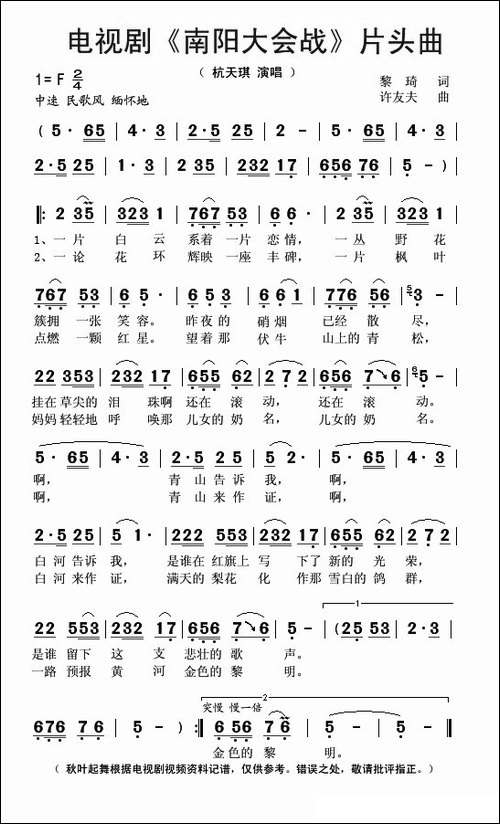 电视剧《南阳大会战》片头曲
（ 杭天琪 演唱 ）
1=F 2/4
黎 琦 词
中速 民歌风 缅怀地
许友夫 曲
( 5· 65 | 4· 3 | 2·5 25 | 5· 65 | 4· 3 |
2·5 25 | 1· 3 | 2 35 | 232 17 | 656 76 | 5 - ) |
‖: 2 35 | 323 1 | 767 53 | 6 6· | 2 35 | 323 1 |
1、一 片 白 云 系着 一片 恋 情， 一 丛 野 花
2、一 论 花 环 辉映 一座 丰 碑， 一 片 枫 叶
767 53 | 6 5· | 6 5· | 6 61 | 776 56 | 3 - |
簇拥 一张 笑 容。 昨 夜 的 硝 烟 已经 散 尽，
点燃 一颗 红 星。 望 着 那 伏 牛 山上的 青 松，
22 353 | 232 17 | 655 65 | 2 7 2 | 656 7 6 | 5 - |
挂在 草尖的 泪 珠啊 还在 滚 动， 还在 滚 动。
妈妈 轻轻地 呼 唤那 儿女的 奶 名， 儿女的 奶 名。
5· 65 | 4· 3 | 2·5 25 | 5 2· | 5· 65 | 4· 3 |
啊， 青 山 告诉 我， 啊，
啊， 青 山 来作 证， 啊，
2·5 25 | 5 1· | 222 553 | 232 17 | 655 62 | 2 7 2 |
白 河 告诉 我， 是谁在 红旗上 写 下了 新的 光 荣，
白 河 来作 证， 满天的 梨花 化 作那 雪白的 鸽 群，
22 553 | 232 17 | 656 | 7 6 | 5 - | (25 53 | 2· 3 |
是谁 留下 这 支 悲壮的 歌 声。
一路 预报 黄 河 金色的 黎 明。
突慢 慢一倍
676 7 6 | 5 - ) :‖ 6 56 7 6 | 5 - | 5 - | 5 - ‖
金色的 黎 明。
（ 秋叶起舞根据电视剧视频资料记谱，仅供参考。错误之处，敬请批评指正。）